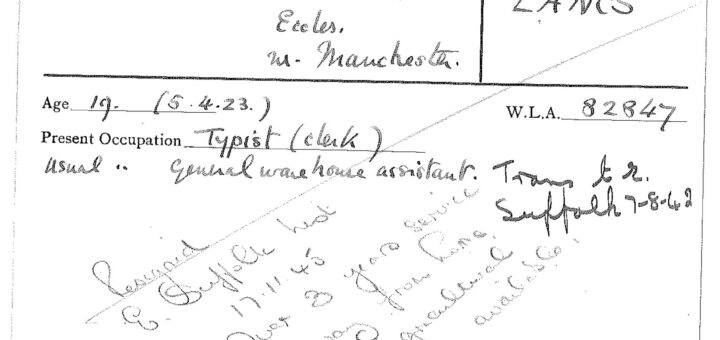 LANCS
Eccles.
nr. Manchester.
Age 19. (5.4.23.)
W.L.A. 82847
Present Occupation Typist (clerk)
usual .. General warehouse assistant.
Trans to E.
Suffolk 7-8-42
Resigned
E. Suffolk
17.11.45
Over 3 years service
away from home.
agricultural
available.